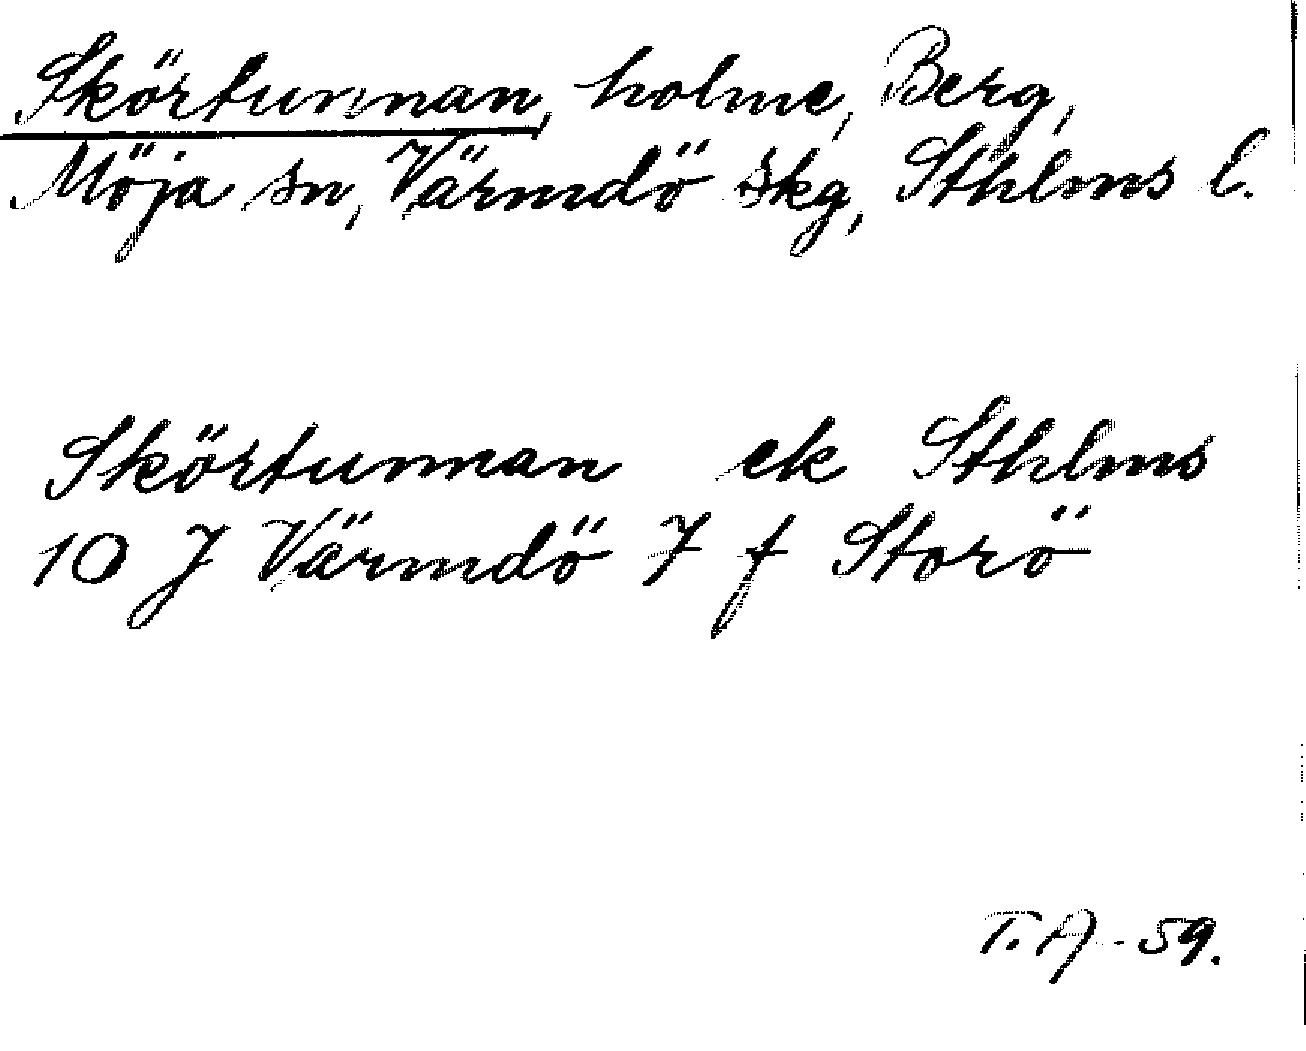 Skörtunnan, holme, Berg,
Möja sn, Värmdö skg, Sthlms l.
Skörtunnan ek Sthlms
10 J Värmdö 7 f Storö
T. A - 59.